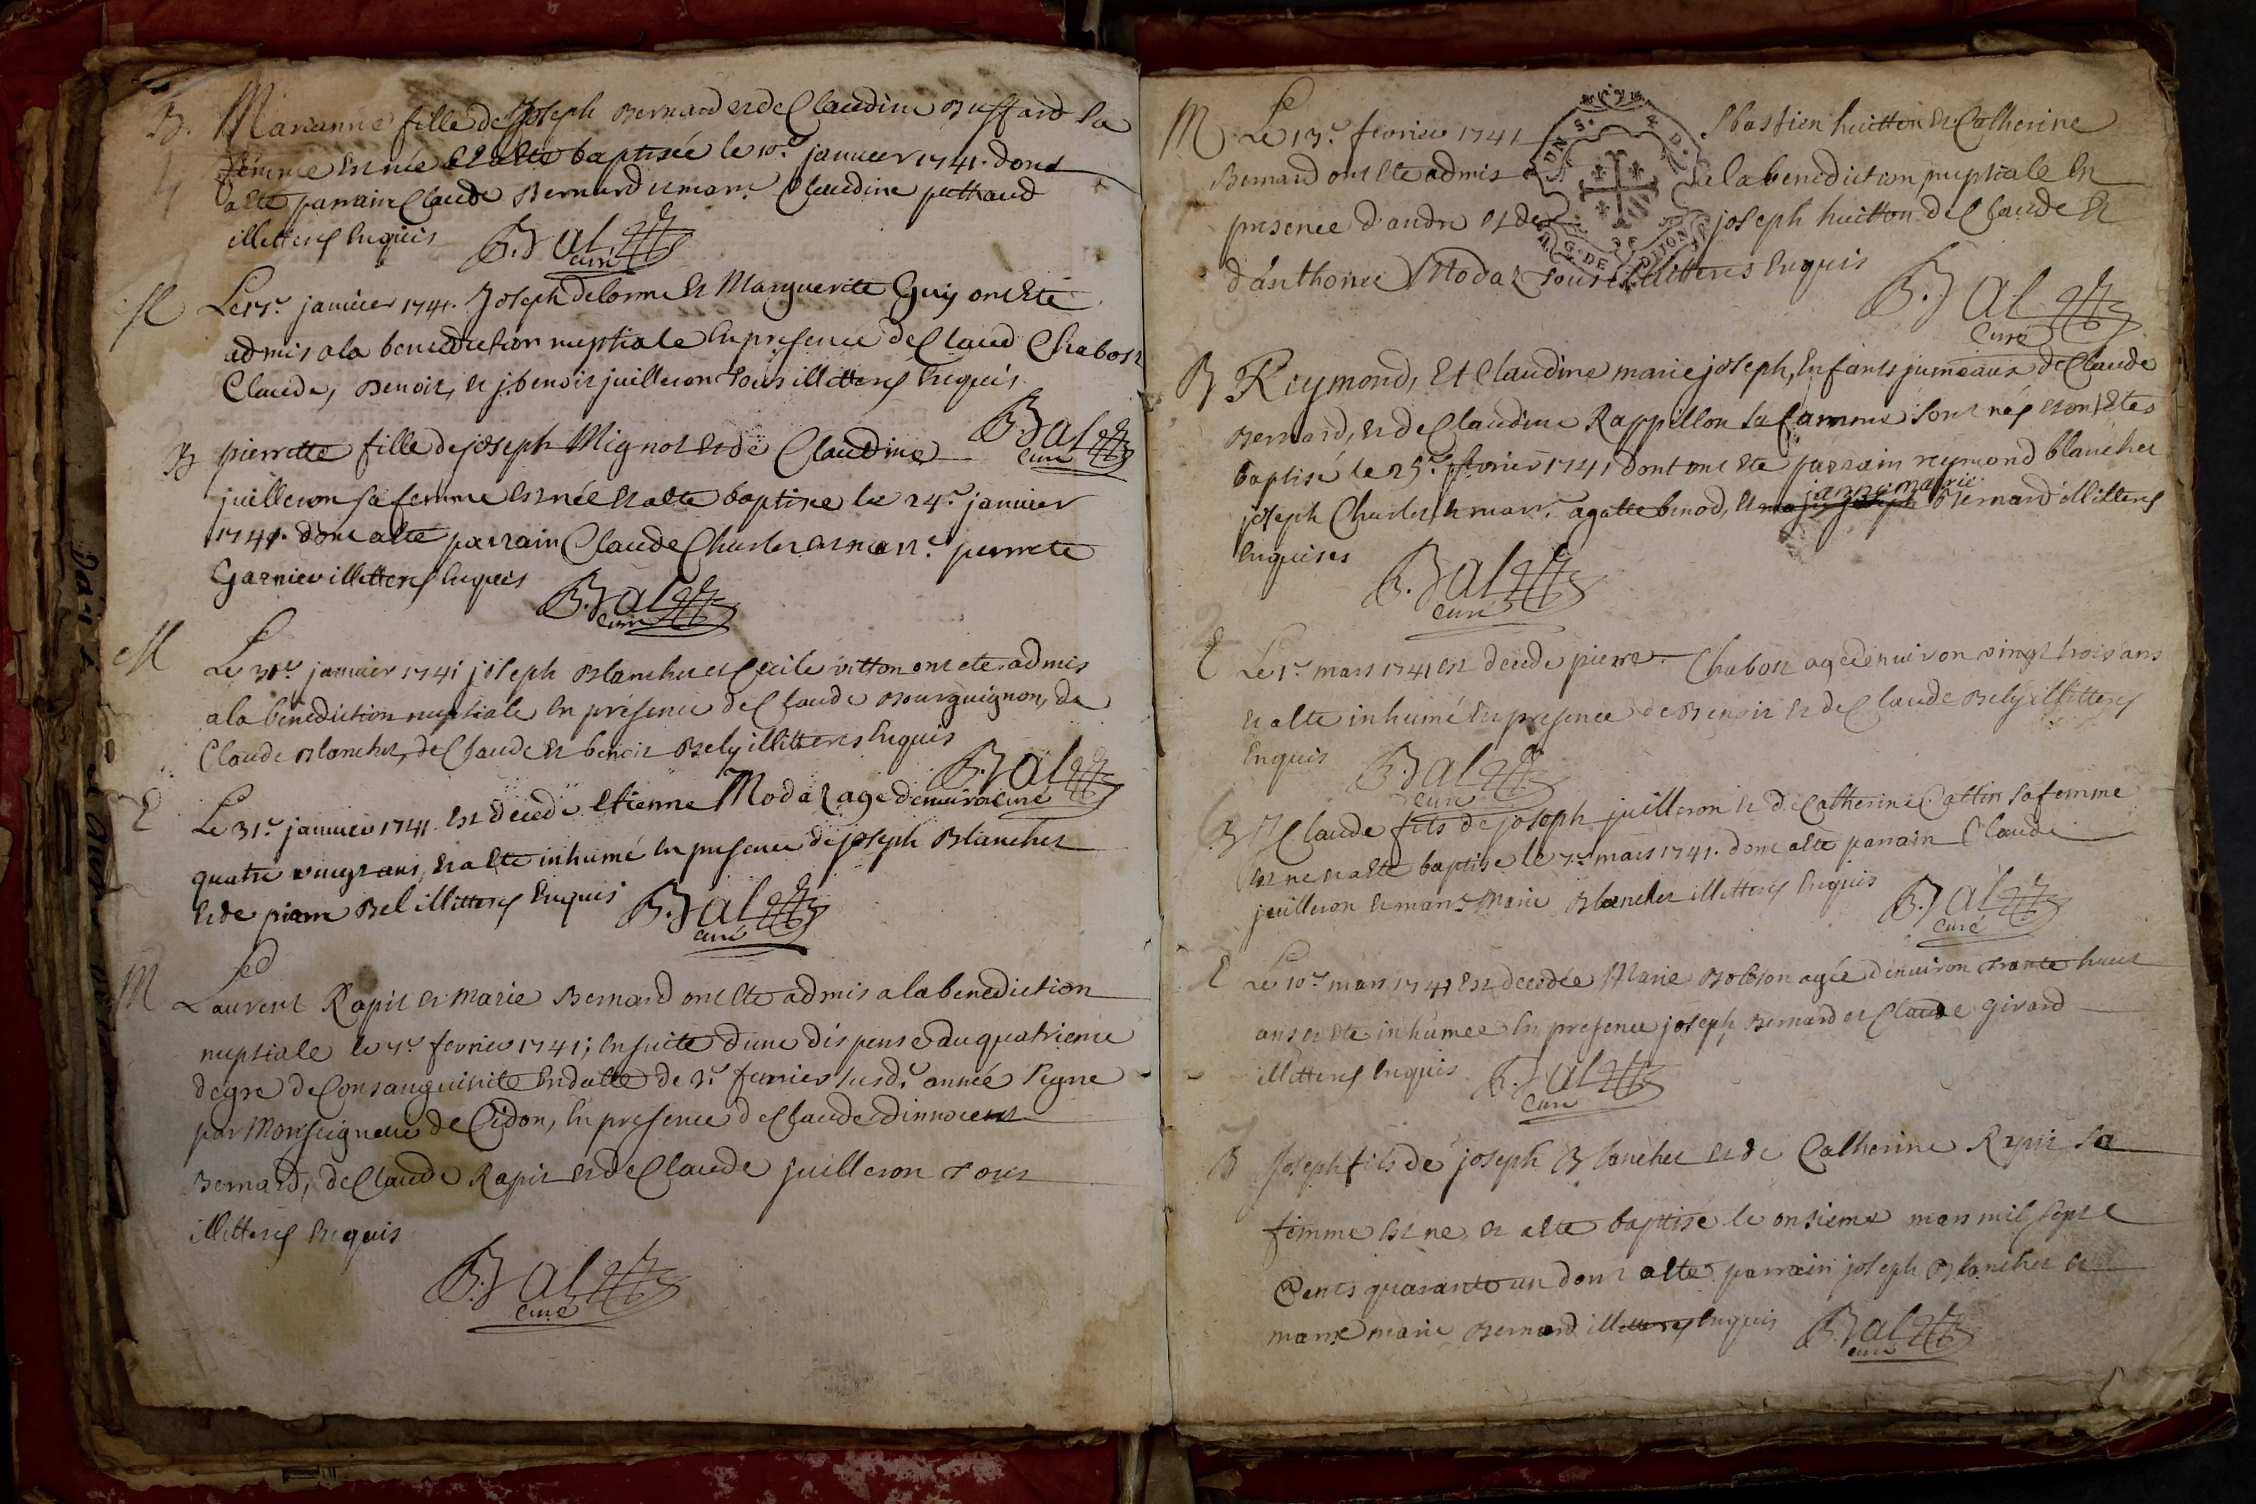 B. Marianne fille de Joseph Bernard et de Claudine Buffard sa
femme est née et a ete baptisée le 10.e janvier 1741. dont
a ete parrain Claude Bernard et marr.e Claudine puthaud
illitterés enquis B. Jal
curé
M Le janvier 1741. Joseph delorme et Marguerite Guy ont ete
admis a la benediction nuptiale en presence de Claud Chabost
Claude, Benoit, et j. benoit juilleron tous illitterés enquis
B. Jal
curé
B pierrette fille de joseph Mignot et de Claudine
juilleron sa femme est née et a ete baptisee le 24.e janvier
1741. dont a ete parrain Claude Charles et marr.e pierrete
Garnier illitterés enquis B. Jal
curé
M Le 31.e janvier 1741 joseph Blanchet et Cecile vitton ont ete admis
a la benediction nuptiale en présence de Claude Bourguignon, de
Claude Blanchet, de Claude et benoit Bely illitterés enquis
B. Jal
curé
E Le 31.e janvier 1741 est decede etienne Modaz age denviron
quatre vingt ans, et a ete inhumé en presence de joseph Blanchet
et de pierre Bel illitterés enquis B. Jal
curé
M Laurent Rapit et Marie Bernard ont ete admis a la benediction
nuptiale le 7.e fevrier 1741; ensuite d'une dispense du quatrieme
degre de Consanguinité en datte de fevrier susd.e année signe
par Monseigneur de Cidon, en presence de Claude dinnocent
Bernard, de Claude Rapit et de Claude juilleron tous
illitterés enquis
B. Jal
curé
M Le 13.e fevrier 1741 Sbastien huitton et Catherine
Bernard ont ete admis a la benediction nuptiale en
presence d'andre et de joseph huitton de Claude et
d'anthoine Modaz tous illitterés enquis
G. DE DIJON
B. Jal
curé
B Reymond, et Claudine marie joseph, enfants jumeaux de Claude
Bernard, et de Claudine Rappillon sa famme sont nés et ont etes
baptisé le 25.e fevrier 1741 dont ont ete parrain reymond blanchet
janne marie
joseph Charles, et marr.e agatte benod, et Bernard illitterés
enquises B. Jal
curé
E Le 1.er mars 1741 est decede pierre Chabost agé denviron vingt trois ans
et a ete inhumé en presence de Benoit et de Claude Bely illitterés
enquis B. Jal
curé
B Claude fils de joseph juilleron et de Catherine Cattin sa femme
est ne et a ete baptise le 7.e mars 1741. dont a ete parrain Claude
juilleron et marr.e Marie Blanchet illitterés enquis B. Jal
curé
E Le 10.e mars 1741 est decedée Marie agée denviron trante huit
ans et ete inhumee en presence joseph Bernard et Claude girard
illitterés enquis B. Jal
curé
B Joseph fils de joseph Blanchet et de Catherine Rapit sa
femme est ne et a ete baptisé le onsieme mars mil sept
Cents quarante un dont a ete parrain joseph Blanchet et
marr.e marie Bernard illitterés enquis B. Jal
curé